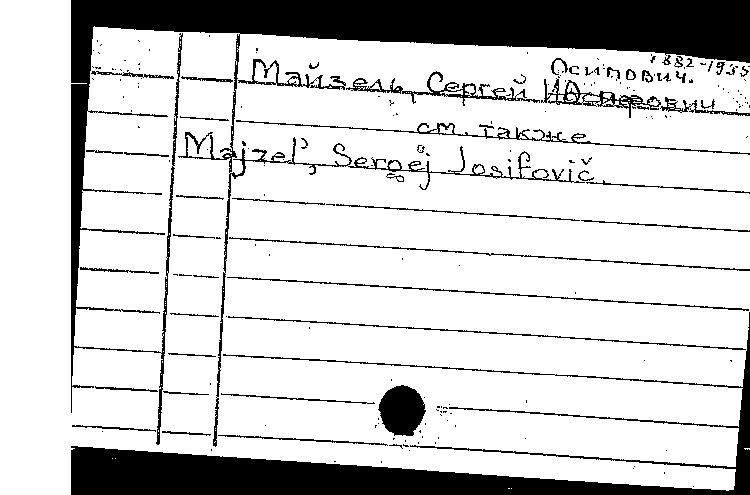 1882-1955
Осипович.
Майзель, Сергей Иосифович
см. также
Majzel', Sergej Josifovič.